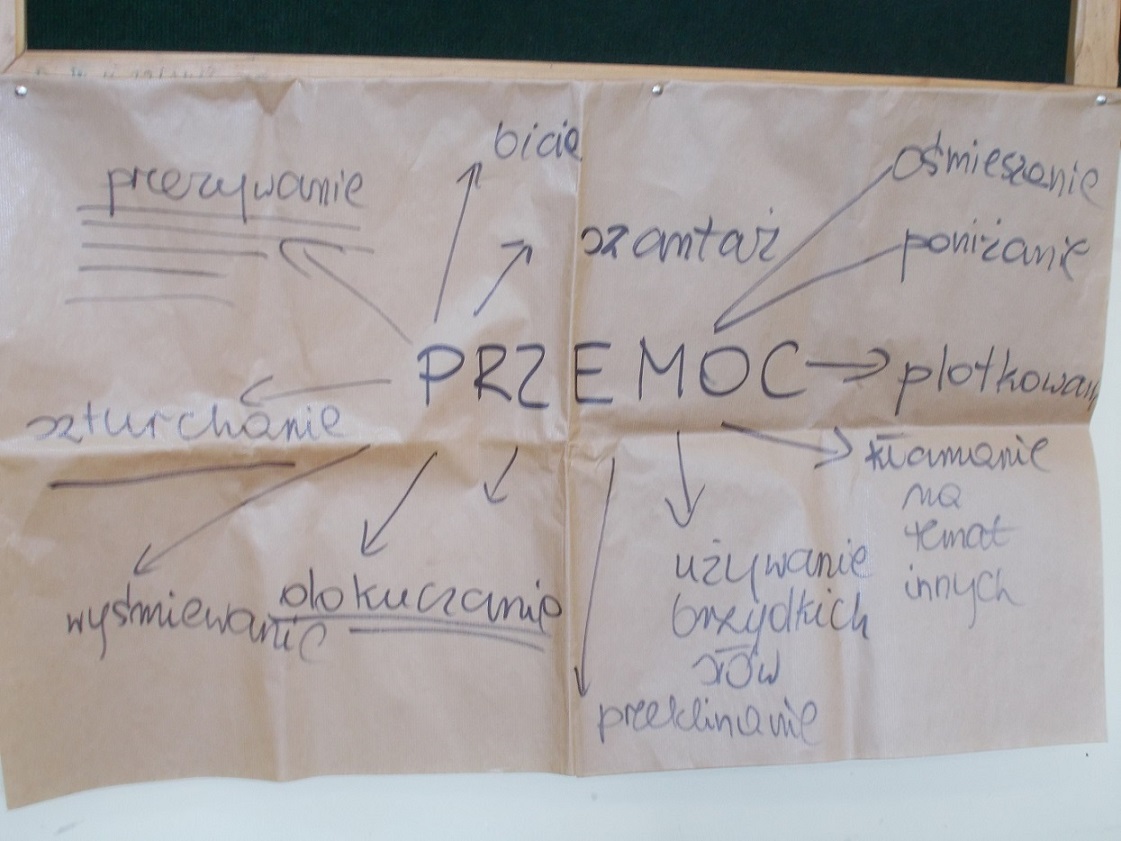 bicie
przezywanie
ośmieszanie
szantaż
poniżanie
PRZEMOC
plotkowan
szturchanie
kłamanie
na
temat
innych
dokuczanie
wyśmiewanie
używanie
brzydkich
słów
przeklinanie